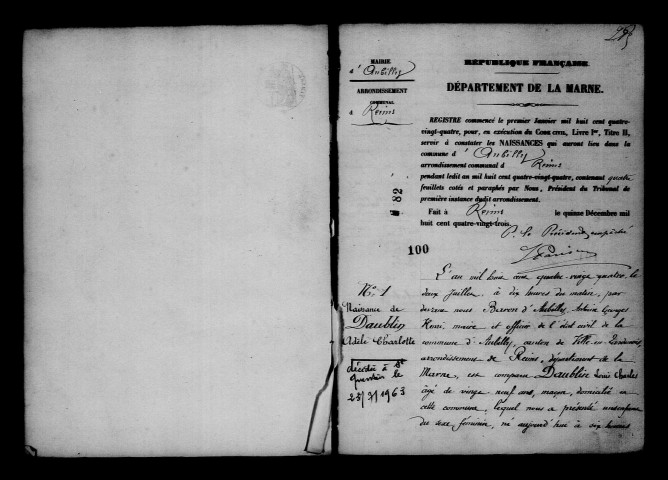 MAIRIE
d'Aubilly
ARRONDISSEMENT
COMMUNAL
à Reims
RÉPUBLIQUE FRANÇAISE.
DÉPARTEMENT DE LA MARNE.
REGISTRE commencé le premier Janvier mil huit cent quatre-
vingt-quatre, pour, en exécution du CODE CIVIL, Livre Ier, Titre II,
servir à constater les NAISSANCES qui auront lieu dans la
commune d'Aubilly
arrondissement communal d Reims
pendant ledit an mil huit cent quatre-vingt-quatre, contenant quatre
feuillets cotés et paraphés par Nous, Président du Tribunal de
première instance dudit arrondissement.
Fait à Reims le quinze Décembre mil
huit cent quatre-vingt-trois.
P. le Président empêché
82
100
N° 1
Naissance de
Daublin
Adèle Charlotte
décédée à St
Quentin le
23/7/1963
L'an mil huit cent quatre-vingt quatre, le
deux Juillet à dix heures du matin, par
devant nous Baron d'Aubilly, Antoine Georges
Henri, maire et officier de l'état civil de la
commune d'Aubilly, canton de Ville-en-Tardenois,
arrondissement de Reims, département de la
Marne, est comparu Daublin Louis Charles
âgé de vingt neuf ans, maçon, domicilié en
cette commune, lequel nous a présenté un enfant
du sexe féminin, né aujourd'hui à six heures